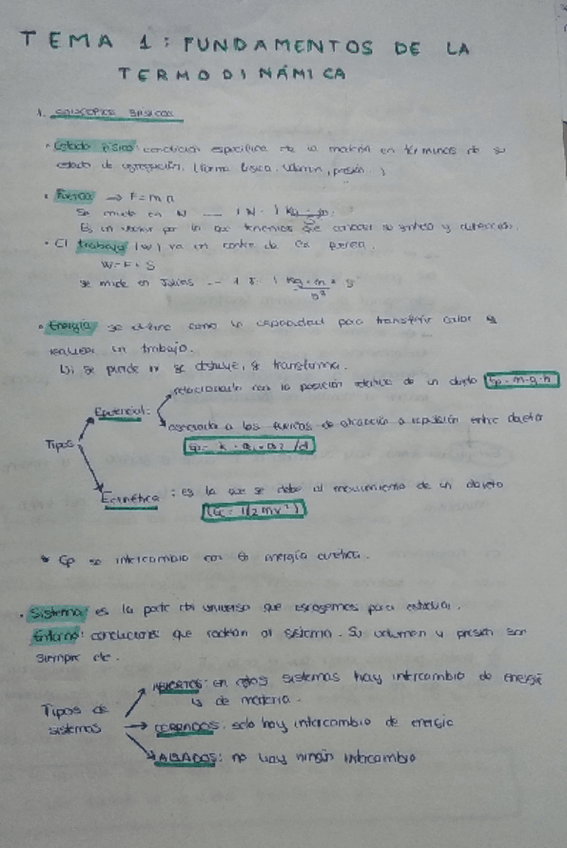 TEMA 1: FUNDAMENTOS DE LA
TERMODINÁMICA
1. CONCEPTOS BÁSICOS
· Estado físico: condición específica de la materia en términos de su
estado de agregación. (forma física, volumen, presión...)
· Fuerza → F = m a
Se mide en N --- 1 N = 1 kg · m
Es un vector por lo que tenemos que conocer su sentido y dirección.
· El trabajo (W) va en contra de la fuerza.
W = F · S
se mide en Julios -- 1 J = 1 kg · m ·
· Energía se define como la capacidad para transferir calor y
realizar un trabajo.
Ni se puede ni se destruye, se transforma.
relacionada con la posición relativa de un objeto Ep = m · g · h
Epotencial:
asociada a las fuerzas de atracción o repulsión entre objetos
Tipos Ep = k · Q1 · Q2 / d
Ecinética: es la que se debe al movimiento de un objeto
Ec = 1/2 mv²
* Ep se intercambia con la energía cinética.
· Sistema es la parte del universo que escogemos para estudiar.
Entorno: condiciones que rodean al sistema. Su volumen y presión son
siempre cte.
ABIERTOS: en estos sistemas hay intercambio de energía
y de materia.
Tipos de
sistemas CERRADOS: solo hay intercambio de energía
AISLADOS: no hay ningún intercambio